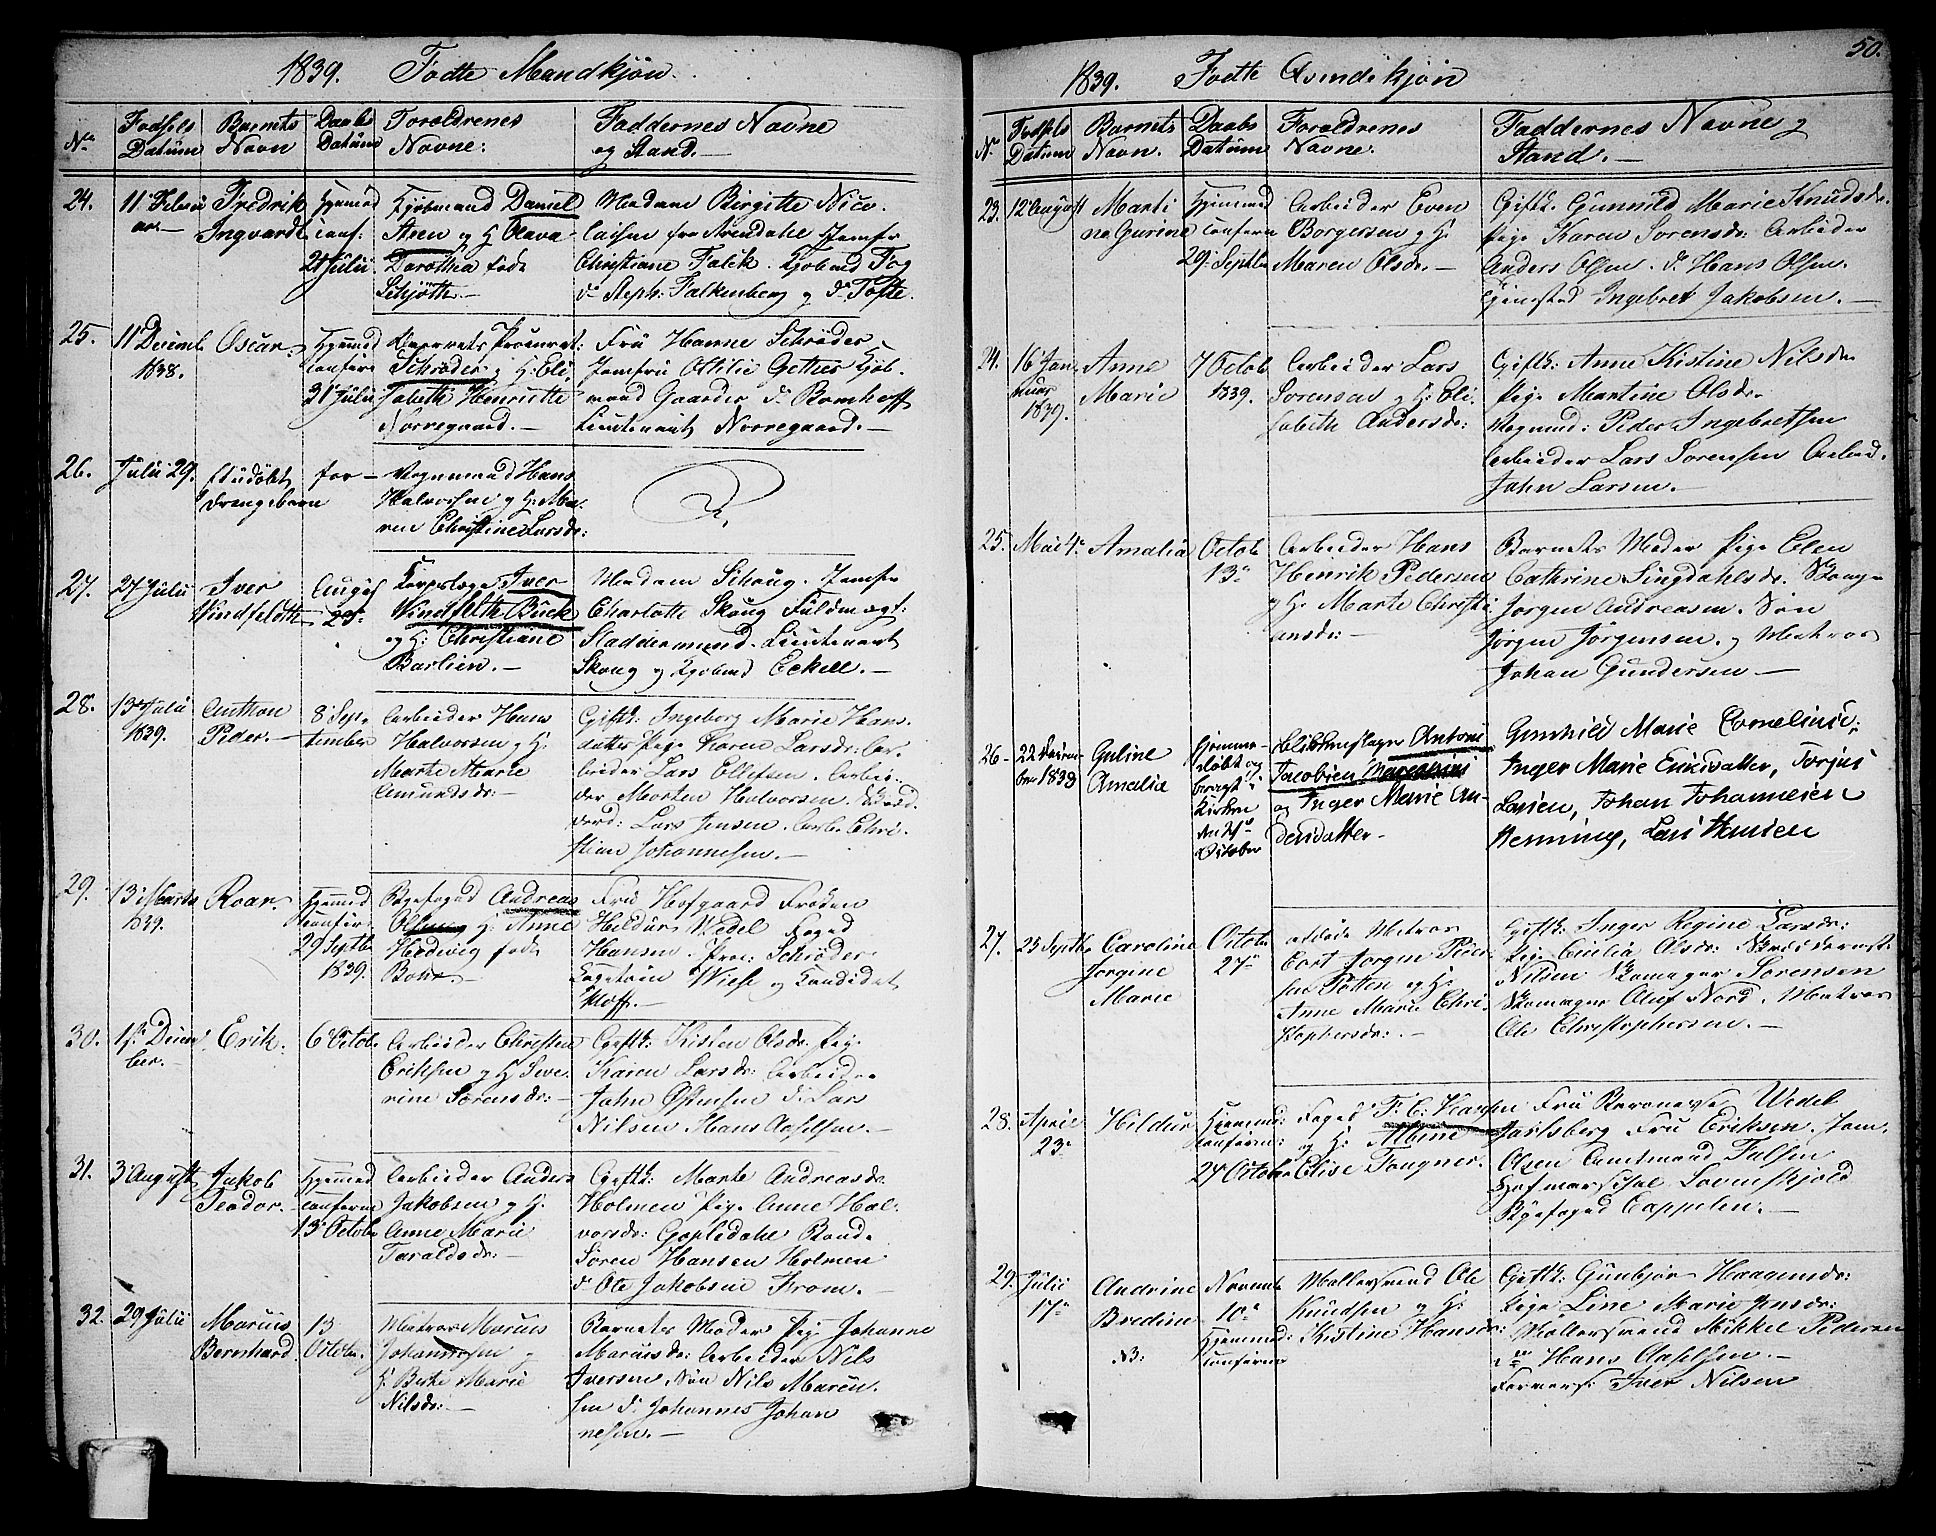 1839. Fødte Mandkjøn.
No
Fødsels Datum
Barnets Navn
Daabs Datum
Forældrenes Navne:
Faddernes Navne og Stand.—
24.
11 Febru
ar.—
Fredrik
Ingvardt
Hjemmed
conf:
21 Julii
Kjøbmand Daniel
Aren og H. Olava
Dorothea født
Schjøtt.—
Madame Birgitte Nico-
laisen fra Arendahl Jomfr
Christiane Falck. Kjøbmd Fog
do Steph: Falkenberg og do Tofte.
25.
11 Decemb.
1838.
Oscar.
Hjemmed
confir:
31 Julii
Schrøder og H: Eli-
sabeth Henriette
Norregaard.—
Fru Hanne Schrøder
Jomfru Ottilie Getherr Kjøb-
mand Gaarder do Bomhoff
Lieutenant Norregaard.—
26.
Julii 29.
Udødbt
Drengebarn
for—
Vognmand Hans
Halvorsen og H: Ma-
ren Christine Larsdr:
27.
27 Julii
Iver
Windfeldth
August
25.
Corpslæge Iver
Windfeldth Buck
og H: Christiane
Barlien.—
Madam Schoug. Jomfr
Charlotte Skoug Fuldmægt:
Staddermund. Lieutenant
Skoug og Kjøbmd Eckell.—
28.
13 Julii
1839.
Anthon
Peder.—
8 Sep-
tember
Arbeider Hans
Halvorsen og H.
Marte Marie
Amundsdr:
Giftk: Ingeborg Marie Hans-
datter Pige Karen Larsdr: Ar-
beider Lars Ellefsen. Arbei-
der Morten Halvorsen.
Lars Jensen. Arb. Chri-
stian Johannesen.—
29.
13 Marts
1839.
Roar.
Hjemmed
confir:
29 Septbr
1839.
Byefoged Andreas
Olsen og H: Anne
Hedevig født
Bohr.—
Fru Hofgaard Frøken
Hildur Wedel Foged
Hansen. Proc: Schrøder
Capitain Wiese og Candidat
Hoff.—
30.
1ste Decem
ber.—
Erik.
6 Octob.
Arbeider Christen
Eriksen og H Seve-
rine Sørensdr:—
Giftk: Kisten Olsdr. Pig.
Karen Larsdr: Arbeider
John Østensen do Lars
Nilsen. Hans Axelsen.—
31.
3 August
Jakob
Teodor.—
Hjemmed
confirm
13 Octob.
Arbeider Anders
Jakobsen og H.
Anne Marie
Taraldsdr:—
Giftk: Marte Andreasdr.
Holmen Pige Anne Hal-
vorsdr: Gopledahl Bond.
Søren Hansen Holmen
do Ole Jakobsen From.—
32.
29 Julii
Marius
Bernhard.
13
Octobr.
Matros Marius
Johannesen og
H. Berte Marie
Nilsdr:—
Barnets Moder Pig Johanne
Mariusdr: Arbeider Nils
Iversen. Søn Nils Mariu-
sen do Johannes Johan
nesen.—
1839. Fødte Qvindekjøn
50.
No
Fødsels Datum
Barnets Navn.
Daabs Datum
Forældrenes Navne:
Faddernes Navne og Stand.—
23.
12 August
Marti
ne Gurine
Hjemmed
confirm
29 Septbr
Arbeider Even
Borgersen og H:
Maren Olsdr.—
Giftk. Gunnild Marie Knudsdr.
Pige Karen Sørensdr: Arbeider
Anders Olsen. do Hans Olsen.
Tjenestd Ingebret Jakobsen.—
24.
16 Jan
nuar
1839.
Anne
Marie
7 Octob
1839.
Arbeider Lars
Sørensen og H: Eli-
sabeth Andersdr:
Giftk: Anne Kistine Nilsdr.
Pige Martine Olsdr.
Vognmd: Peder Ingebretsen
Arbeider Lars Sørensen Arbmd.
John Larsen.—
25.
Mai 4.
Amalia
Octob
13.
Arbeider Hans
Henrik Pedersen
og H. Marte Christi
ansdr:—
Barnets Moder Pige Elen
Cathrine Lingdahlsdr. Skomg.
Jørgen Andreasen. Søn
Jørgen Jørgensen. og Matros
Johan Gundersen—
26—
22 Decem-
ber 1838
Guline
Amalia
hjemme-
døbt og
bragt i
Kirken
October
Blikkenslager Antoni
Jacobsen
og Inger Marie An-
dersdatter—
Gunhild Marie Cornelius,
Inger Marie Eriksdatter, Torjus
Larsen, Johan Johannesen
Henning, Lars Hansen
27.
25 Septbr
Caroline
Jorgine
Marie
Octob.
27.
Matros
Cort Jorgen Peder
sen Potten og H:
Anne Marie Chri-
stophersdr:—
Giftk: Inger Regine Larsdr:
Pig Cecilia Olsdr:
Nilsen Skomager Sørensen
Skomager Oluf Nord. Matros
Ole Christophersen.—
28.
April
23.
Hildur
Hjemmed:
confirm:
27 October
Foged F: C: Hansen
og H: Albine
Elise Fougner.
Fru Baronesse Wedel
Jarlsberg Fru Eriksen. Jom.
Olsen Amtmand Falsen
Hofmarschal Løvenskjold
Byefoged Cappelen.—
29.
Julii
17.
Andrine
Bredine
NB:
Novemb
10.
Hjemmed:
confirm
Møllersvend Ole
Knudsen og H:
Kistine Hansdr:
Giftk: Gunbjør Haagensdr:
Pige Line Marie Jensdr:
Møllersvend Mikkel Pedersen
do Hans Axelsen.—
Farvers: Iver Nilsen